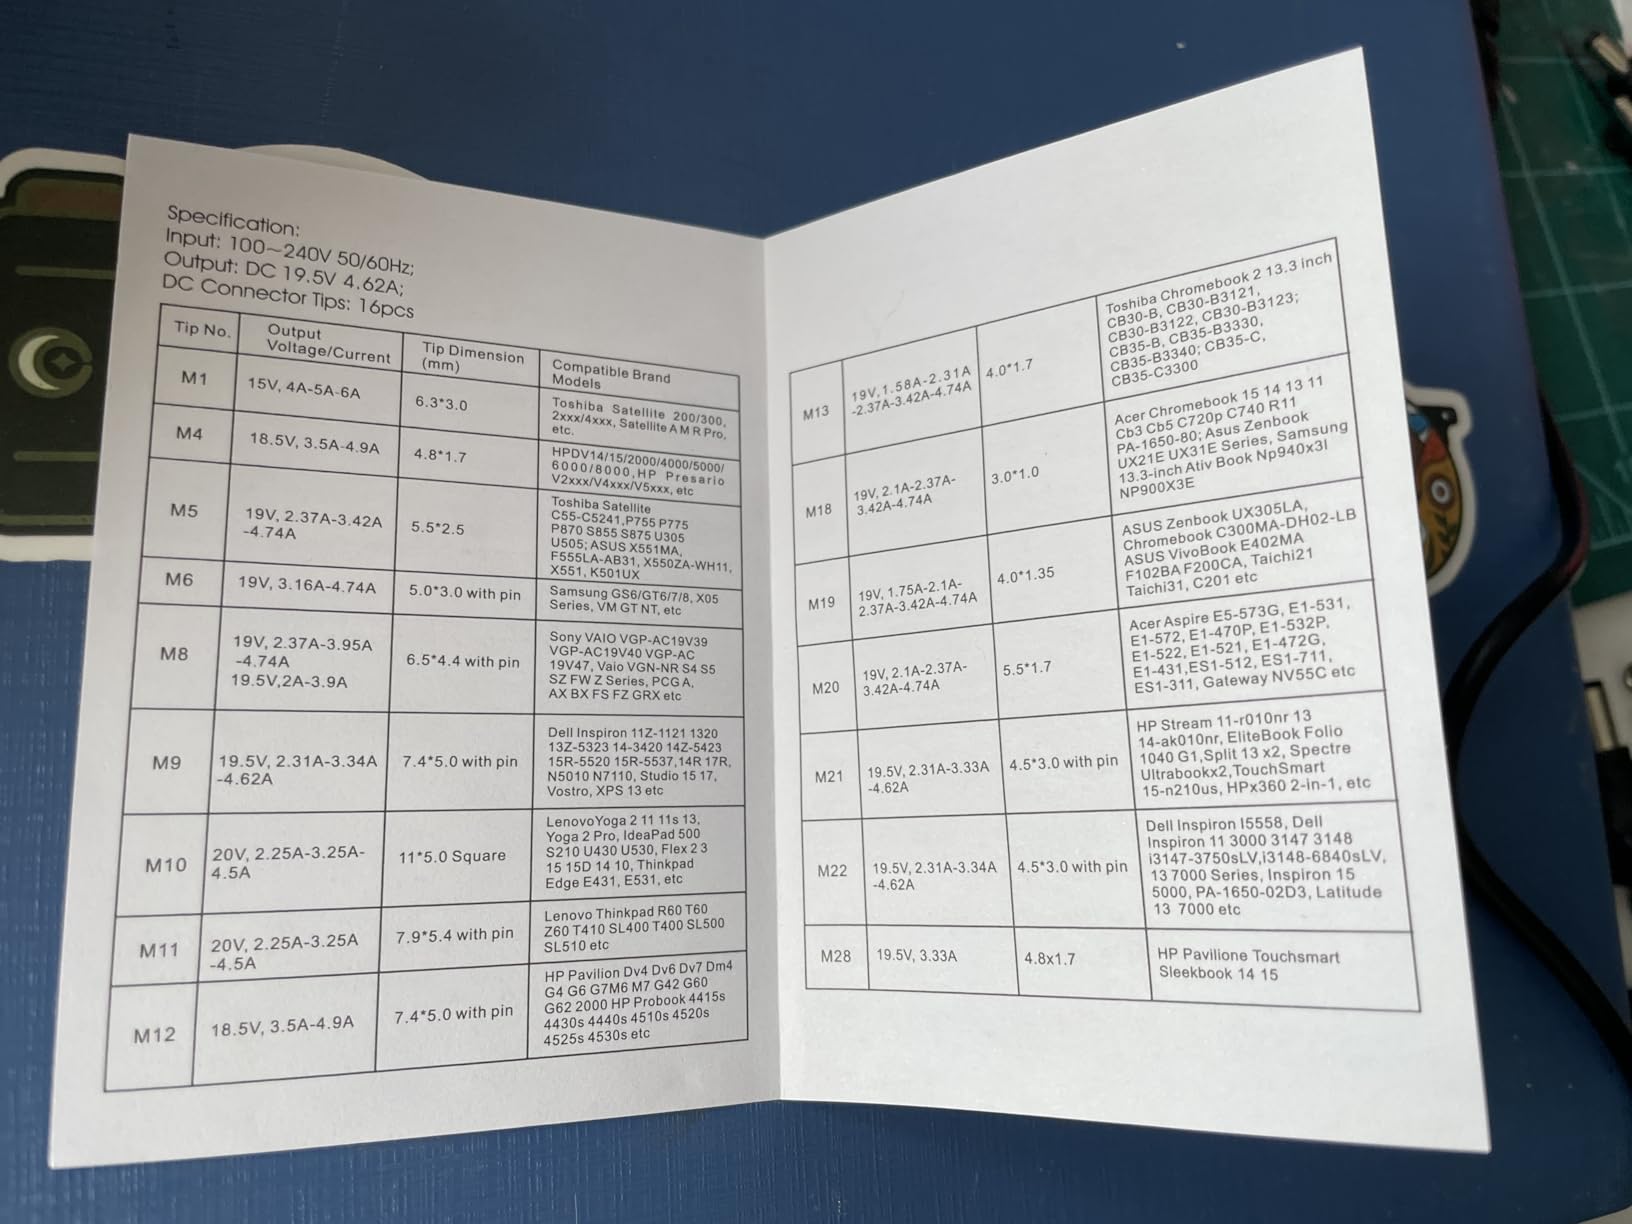 Specification:
Input: 100~240V 50/60Hz;
Output: DC 19.5V 4.62A;
DC Connector Tips: 16pcs
Tip No.
Output
Voltage/Current
Tip Dimension
(mm)
Compatible Brand
Models
M1
15V, 4A-5A-6A
6.3*3.0
Toshiba Satellite 200/300,
2xxx/4xxx, Satellite A M R Pro,
etc.
M4
18.5V, 3.5A-4.9A
4.8*1.7
HPDV14/15/2000/4000/5000/
6000/8000,HP Presario
V2xxx/V4xxx/V5xxx, etc
M5
19V, 2.37A-3.42A
-4.74A
5.5*2.5
Toshiba Satellite
C55-C5241,P755 P775
P870 S855 S875 U305
U505; ASUS X551MA,
F555LA-AB31, X550ZA-WH11,
X551, K501UX
M6
19V, 3.16A-4.74A
5.0*3.0 with pin
Samsung GS6/GT6/7/8, X05
Series, VM GT NT, etc
M8
19V, 2.37A-3.95A
-4.74A
19.5V,2A-3.9A
6.5*4.4 with pin
Sony VAIO VGP-AC19V39
VGP-AC19V40 VGP-AC
19V47, Vaio VGN-NR S4 S5
SZ FW Z Series, PCG A,
AX BX FS FZ GRX etc
M9
19.5V, 2.31A-3.34A
-4.62A
7.4*5.0 with pin
Dell Inspiron 11Z-1121 1320
13Z-5323 14-3420 14Z-5423
15R-5520 15R-5537,14R 17R,
N5010 N7110, Studio 15 17,
Vostro, XPS 13 etc
M10
20V, 2.25A-3.25A-
4.5A
11*5.0 Square
LenovoYoga 2 11 11s 13,
Yoga 2 Pro, IdeaPad 500
S210 U430 U530, Flex 2 3
15 15D 14 10, Thinkpad
Edge E431, E531, etc
M11
20V, 2.25A-3.25A
-4.5A
7.9*5.4 with pin
Lenovo Thinkpad R60 T60
Z60 T410 SL400 T400 SL500
SL510 etc
M12
18.5V, 3.5A-4.9A
7.4*5.0 with pin
HP Pavilion Dv4 Dv6 Dv7 Dm4
G4 G6 G7M6 M7 G42 G60
G62 2000 HP Probook 4415s
4430s 4440s 4510s 4520s
4525s 4530s etc
M13
19V, 1.58A-2.31A
-2.37A-3.42A-4.74A
4.0*1.7
Toshiba Chromebook 2 13.3 inch
CB30-B, CB30-B3121,
CB30-B3122, CB30-B3123;
CB35-B, CB35-B3330,
CB35-B3340; CB35-C,
CB35-C3300
M18
19V, 2.1A-2.37A-
3.42A-4.74A
3.0*1.0
Acer Chromebook 15 14 13 11
Cb3 Cb5 C720p C740 R11
PA-1650-80; Asus Zenbook
UX21E UX31E Series, Samsung
13.3-inch Ativ Book Np940x3l
NP900X3E
M19
19V, 1.75A-2.1A-
2.37A-3.42A-4.74A
4.0*1.35
ASUS Zenbook UX305LA,
Chromebook C300MA-DH02-LB
ASUS VivoBook E402MA
F102BA F200CA, Taichi21
Taichi31, C201 etc
M20
19V, 2.1A-2.37A-
3.42A-4.74A
5.5*1.7
Acer Aspire E5-573G, E1-531,
E1-572, E1-470P, E1-532P,
E1-522, E1-521, E1-472G,
E1-431,ES1-512, ES1-711,
ES1-311, Gateway NV55C etc
M21
19.5V, 2.31A-3.33A
-4.62A
4.5*3.0 with pin
HP Stream 11-r010nr 13
14-ak010nr, EliteBook Folio
1040 G1,Split 13 x2, Spectre
Ultrabookx2,TouchSmart
15-n210us, HPx360 2-in-1, etc
M22
19.5V, 2.31A-3.34A
-4.62A
4.5*3.0 with pin
Dell Inspiron I5558, Dell
Inspiron 11 3000 3147 3148
i3147-3750sLV,i3148-6840sLV,
13 7000 Series, Inspiron 15
5000, PA-1650-02D3, Latitude
13 7000 etc
M28
19.5V, 3.33A
4.8x1.7
HP Pavilione Touchsmart
Sleekbook 14 15